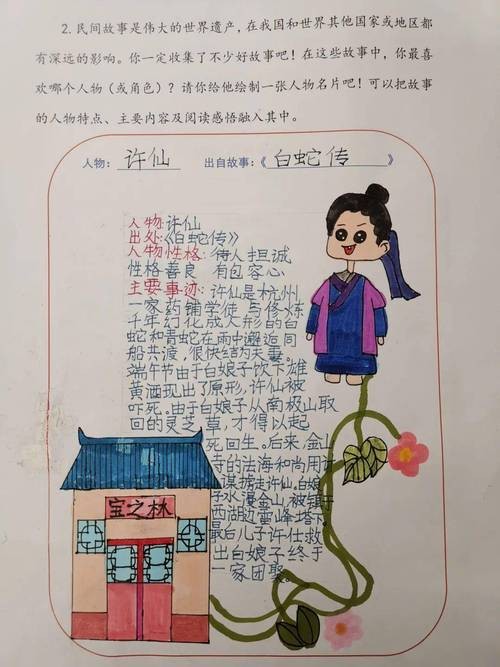 2. 民间故事是伟大的世界遗产，在我国和世界其他国家或地区都
有深远的影响。你一定收集了不少好故事吧！在这些故事中，你最喜
欢哪个人物（或角色）？请你给他绘制一张人物名片吧！可以把故事
的人物特点、主要内容及阅读感悟融入其中。
人物：许仙 出自故事：《白蛇传》
人物:许仙
出处:《白蛇传》
人物性格:待人担诚
性格善良 有包容心
主要事迹:许仙是杭州
一家药铺学徒,与修炼
千年幻化成人形的白
蛇和青蛇在雨中邂逅同
船共渡,很快结为夫妻。
端午节由于白娘子饮下雄
黄酒现出了原形,许仙被
吓死。由于白娘子从南极山取
回的灵芝草,才得以起
死回生。后来,金山
寺的法海和尚用计
谋掳走许仙。白娘
子水漫金山,被镇于
西湖边雷峰塔下。
最后儿子许仕救
出白娘子终于
一家团聚。
宝之林